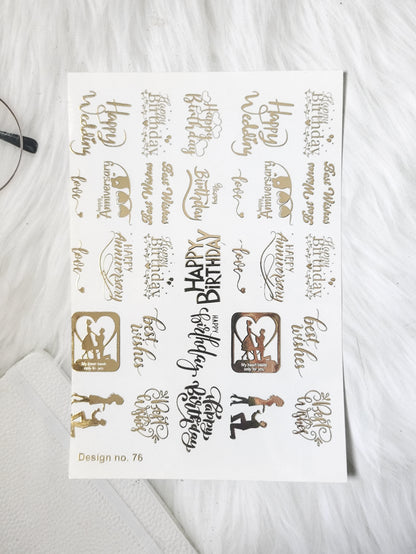 Happy
Wedding
Happy
Birthday
Happy
Birthday
Happy
Wedding
Happy
Birthday
love
Happy
Anniversary
Best Wishes
Best Mom
Happy
Birthday
love
Happy
Anniversary
Best Wishes
Best Mom
love
HAPPY
Anniversary
Happy
Birthday
HAPPY
BIRTHDAY
love
HAPPY
Anniversary
Happy
Birthday
My heart beats
only for you
best
wishes
HAPPY
birthday
My heart beats
only for you
best
wishes
Best
Wishes
Happy
Birthday
Best
Wishes
Design no. 76